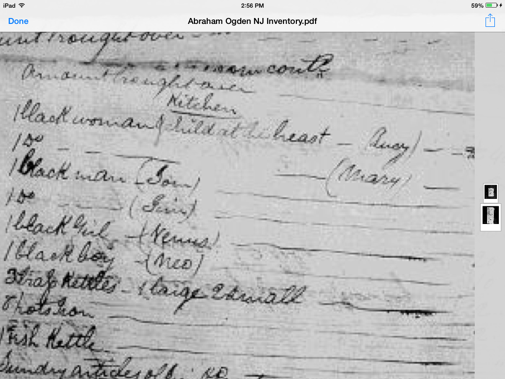 iPad 2:56 PM 59%
Done Abraham Ogden NJ Inventory.pdf
brought over
Amount brought over room cont.
Kitchen
1 black woman & child at the breast — (Lucy) —
1 Do — — (Mary) —
1 black man (Tom)
1 Do (Jim)
1 black Girl — (Venus)
1 black boy — (Neo)
3 Kettles — 1 large 2 small
pots Iron
1 Fish Kettle
Sundry articles of